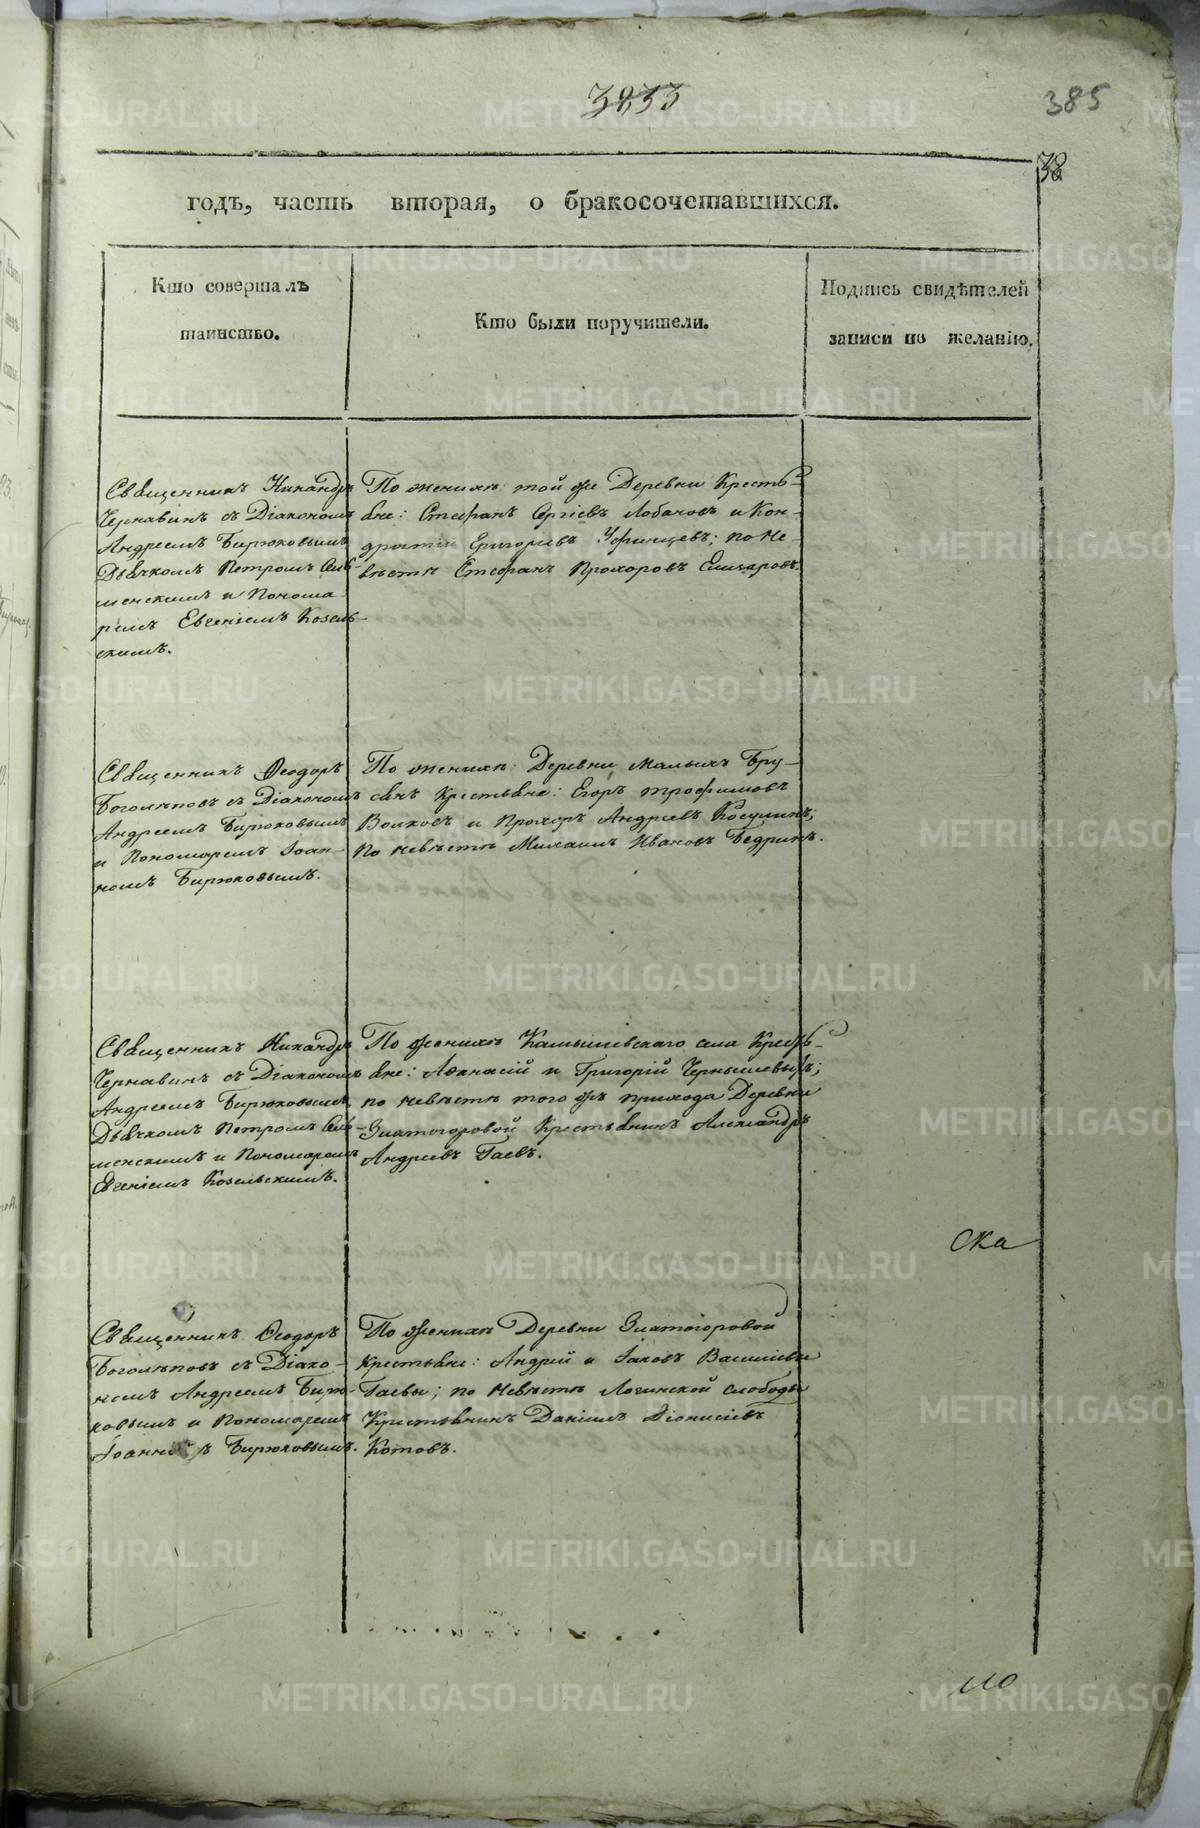 3833
385
38
годъ, часть вторая, о бракосочетавшихся.
Кто совершалъ
таинство.
Кто были поручители.
Подпись свидѣтелей
записи по желанію.
Священникъ Никандръ
Чернавинъ съ Діакономъ
Андреемъ Бирюковымъ
Дьячкомъ Петромъ
менскимъ и Понома
ремъ Евгеніемъ Козель-
скимъ.
По женихѣ: той же Деревни Кресть-
яне: Стефанъ Сергіевъ Лобановъ и Кон-
дратій Григорьевъ Уфинцевъ; по не-
вѣстѣ Стефанъ Прохоровъ Елизаровъ.
Священникъ Ѳеодоръ
Боголѣповъ съ Діакономъ
Андреемъ Бирюковымъ
и Пономаремъ Іоан-
номъ Бирюковымъ.
По женихѣ: Деревни Малыхъ Бру-
сянъ Крестьяне: Егоръ Трофимовъ
Волковъ и Прохоръ Андреевъ Косулинъ;
по невѣстѣ Михаилъ Ивановъ Бедринъ.
Священникъ Никандръ
Чернавинъ съ Діакономъ
Андреемъ Бирюковымъ,
Дьячкомъ Петромъ
менскимъ и Пономаремъ
Евгеніемъ Козельскимъ.
По женихѣ Камышевскаго села Кресть-
яне: Аѳанасій и Григорій Чернышевы;
по невѣстѣ того же прихода Деревни
Златогоровой Крестьянинъ Александръ
Андреевъ Гаевъ.
Ска
Священникъ Ѳеодоръ
Боголѣповъ съ Діако-
номъ Андреемъ Бирю-
ковымъ и Пономаремъ
Іоанномъ Бирюковымъ.
По женихѣ Деревни Златогоровой
Крестьяне: Андрей и Іаковъ Василіевы
Гаевы; по невѣстѣ Логинской слободы
Крестьянинъ Даніилъ Діонисіевъ
Котовъ.
по
METRIKI.GASO-URAL.RU